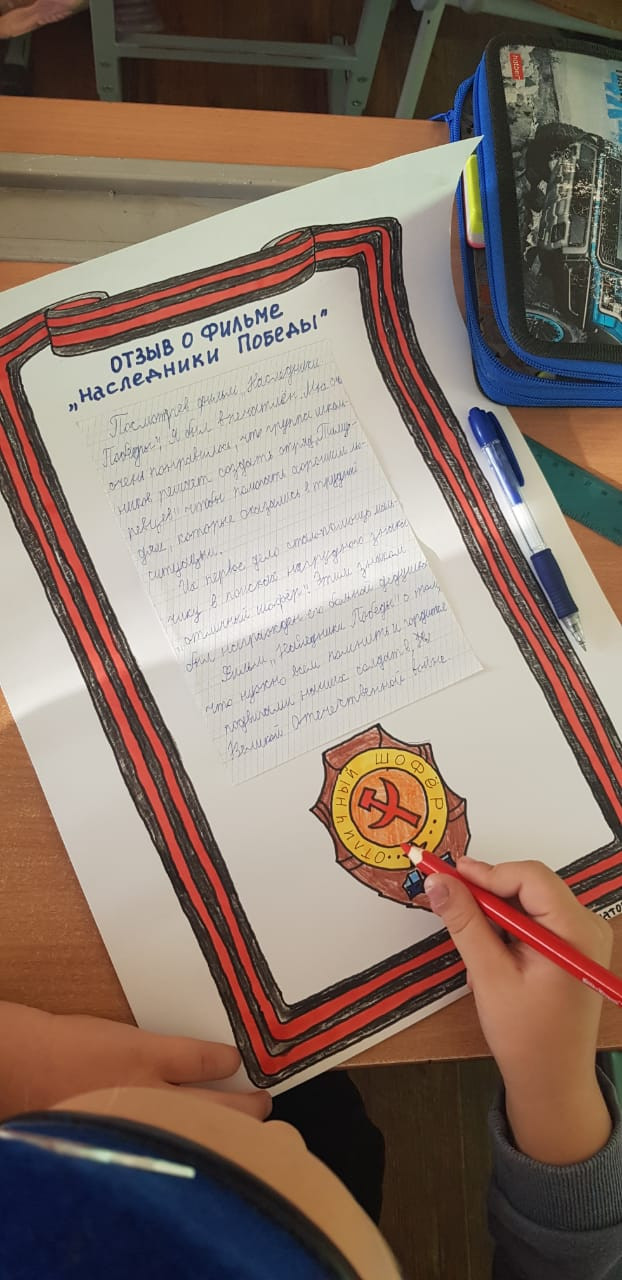 ОТЗЫВ О ФИЛЬМЕ
„НАСЛЕДНИКИ ПОБЕДЫ"
Посмотрев фильм „Наследники
Победы", я был впечатлён. Мне
очень понравилось, что группа школь-
ников решает создать отряд „Тиму-
ровцев", чтобы помогать хорошим лю-
дям, которые оказались в трудной
ситуации.
Их первое дело стало помощь маль-
чику в поисках нагрудного знака
„отличный шофёр". Этим знаком
был награждён его больной дедушка.
Фильм „Наследники Победы" о том,
что нужно всем помнить и гордиться
подвигами наших солдат в
Великой Отечественной войне.
ОТЛИЧНЫЙ ШОФЁР